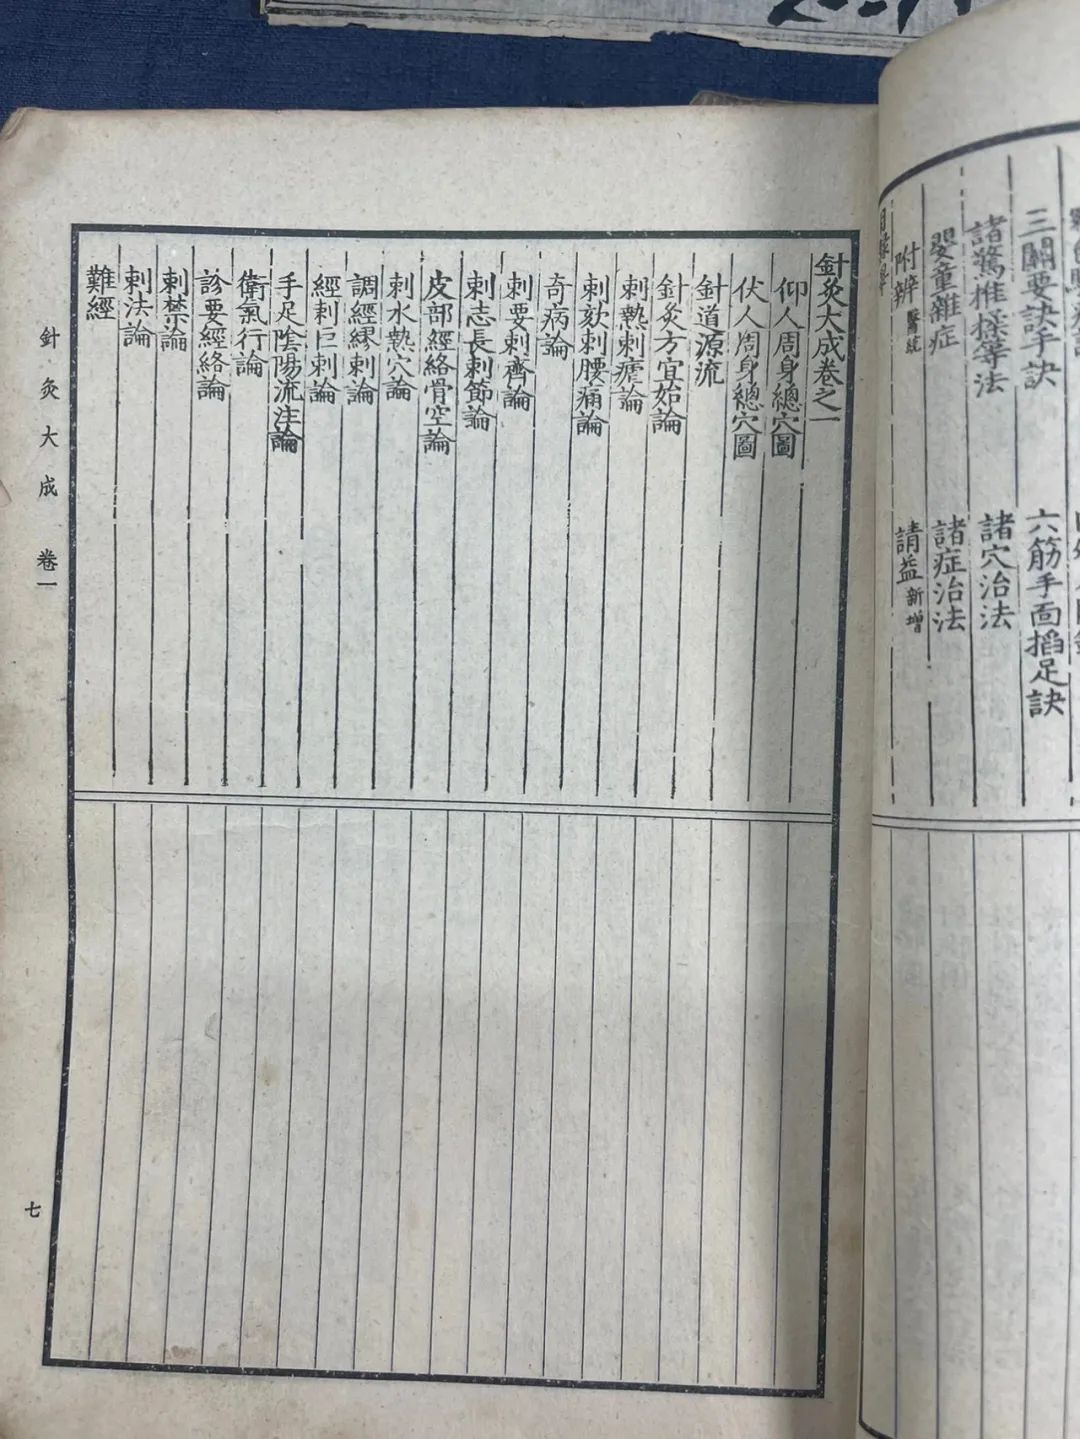 三關要訣手訣
六筋手面掐足訣
諸驚推揉等法
諸穴治法
嬰童雜症
諸症治法
附辨醫統
請益新增
針灸大成卷之一
仰人周身總穴圖
伏人周身總穴圖
針道源流
針灸方宜始論
刺熱刺瘧論
刺欬刺腰痛論
奇病論
刺要刺齊論
刺志長刺節論
皮部經絡骨空論
刺水熱穴論
調經繆刺論
經刺巨刺論
手足陰陽流注論
衛氣行論
診要經絡論
刺禁論
刺法論
難經
針灸大成 卷一
七